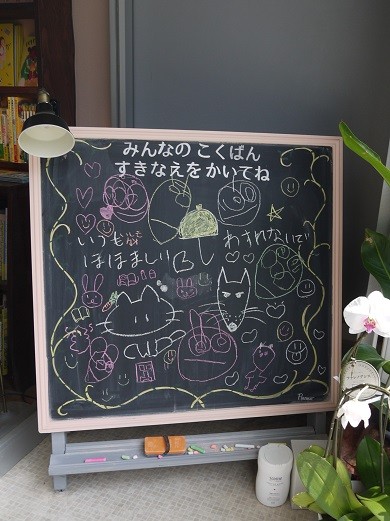 みんなの こくばん
すきなえを かいてね
いつも
わすれないで
ほほましい BL